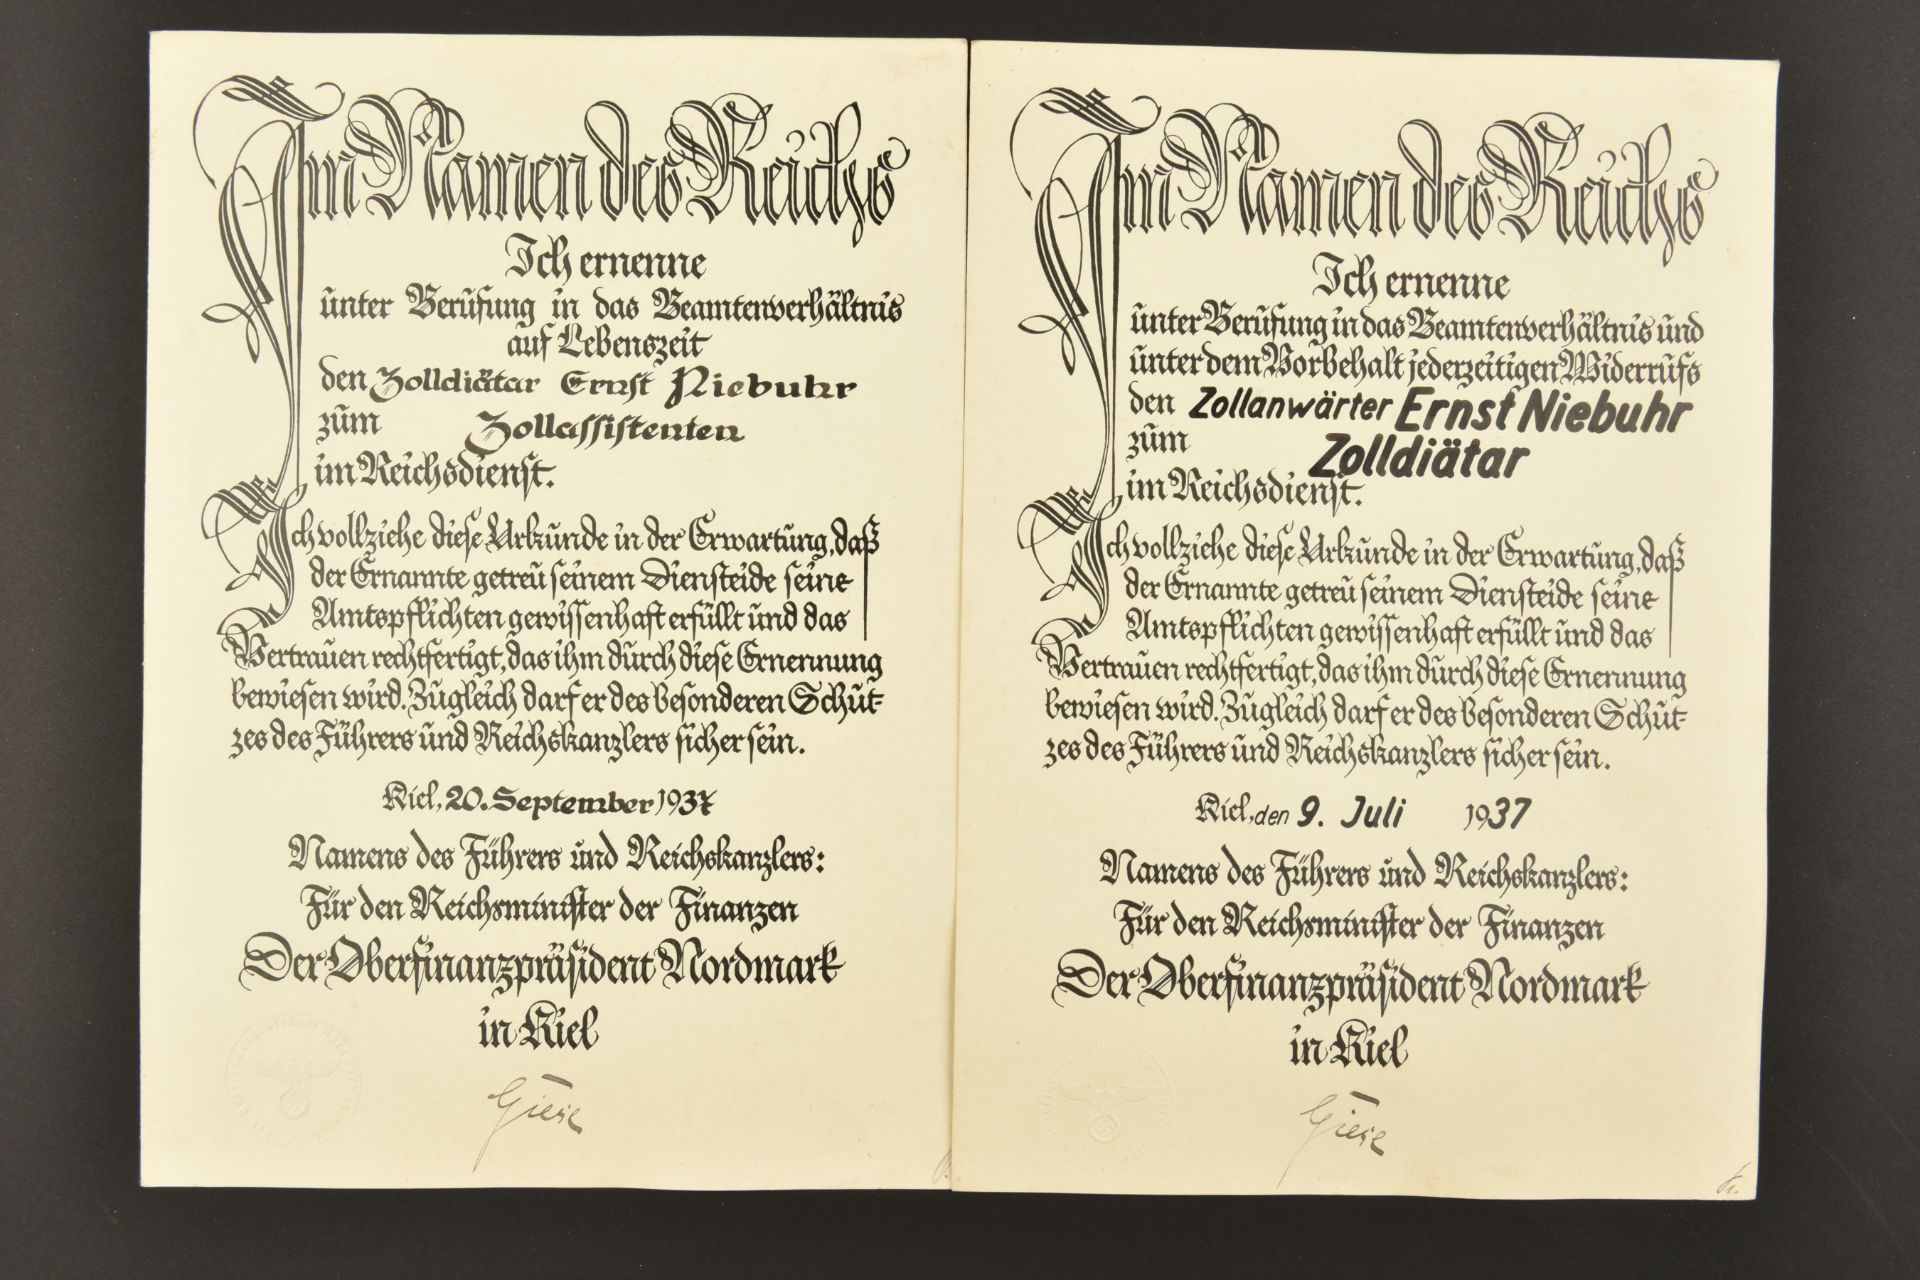 Im Namen des Reichs
Ich ernenne
unter Berufung in das Beamtenverhältnis
auf Lebenszeit
den Zolldiätar Ernst Niebuhr
zum Zollassistenten
im Reichsdienst.
Ich vollziehe diese Urkunde in der Erwartung, daß
der Ernannte getreu seinem Diensteide seine
Amtspflichten gewissenhaft erfüllt und das
Vertrauen rechtfertigt, das ihm durch diese Ernennung
bewiesen wird. Zugleich darf er des besonderen Schut-
zes des Führers und Reichskanzlers sicher sein.
Kiel, 20. September 1937
Namens des Führers und Reichskanzlers:
Für den Reichsminister der Finanzen
Der Oberfinanzpräsident Nordmark
in Kiel
Giese
Im Namen des Reichs
Ich ernenne
unter Berufung in das Beamtenverhältnis und
unter dem Vorbehalt jederzeitigen Widerrufs
den Zollanwärter Ernst Niebuhr
zum Zolldiätar
im Reichsdienst.
Ich vollziehe diese Urkunde in der Erwartung, daß
der Ernannte getreu seinem Diensteide seine
Amtspflichten gewissenhaft erfüllt und das
Vertrauen rechtfertigt, das ihm durch diese Ernennung
bewiesen wird. Zugleich darf er des besonderen Schut-
zes des Führers und Reichskanzlers sicher sein.
Kiel, den 9. Juli 1937
Namens des Führers und Reichskanzlers:
Für den Reichsminister der Finanzen
Der Oberfinanzpräsident Nordmark
in Kiel
Giese